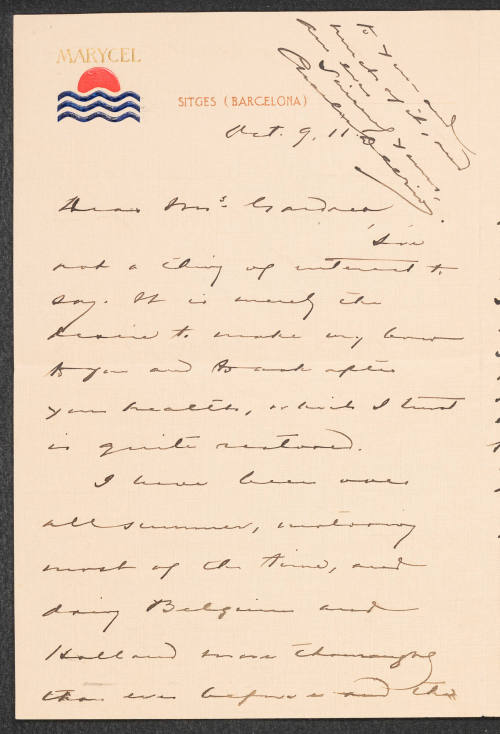 MARYCEL
SITGES (BARCELONA)
Oct. 9, 11.
Dear Mrs. Gardner
I've
not a thing of interest to
say. It is merely the
desire to make my bow
to you and to ask after
your health, which I trust
is quite restored.
I have been over
all summer, motoring
most of the time, and
doing Belgium and
Holland more thoroughly
than ever before and the
to you and
much of it, and
Sincerely yours,
Charles Deering